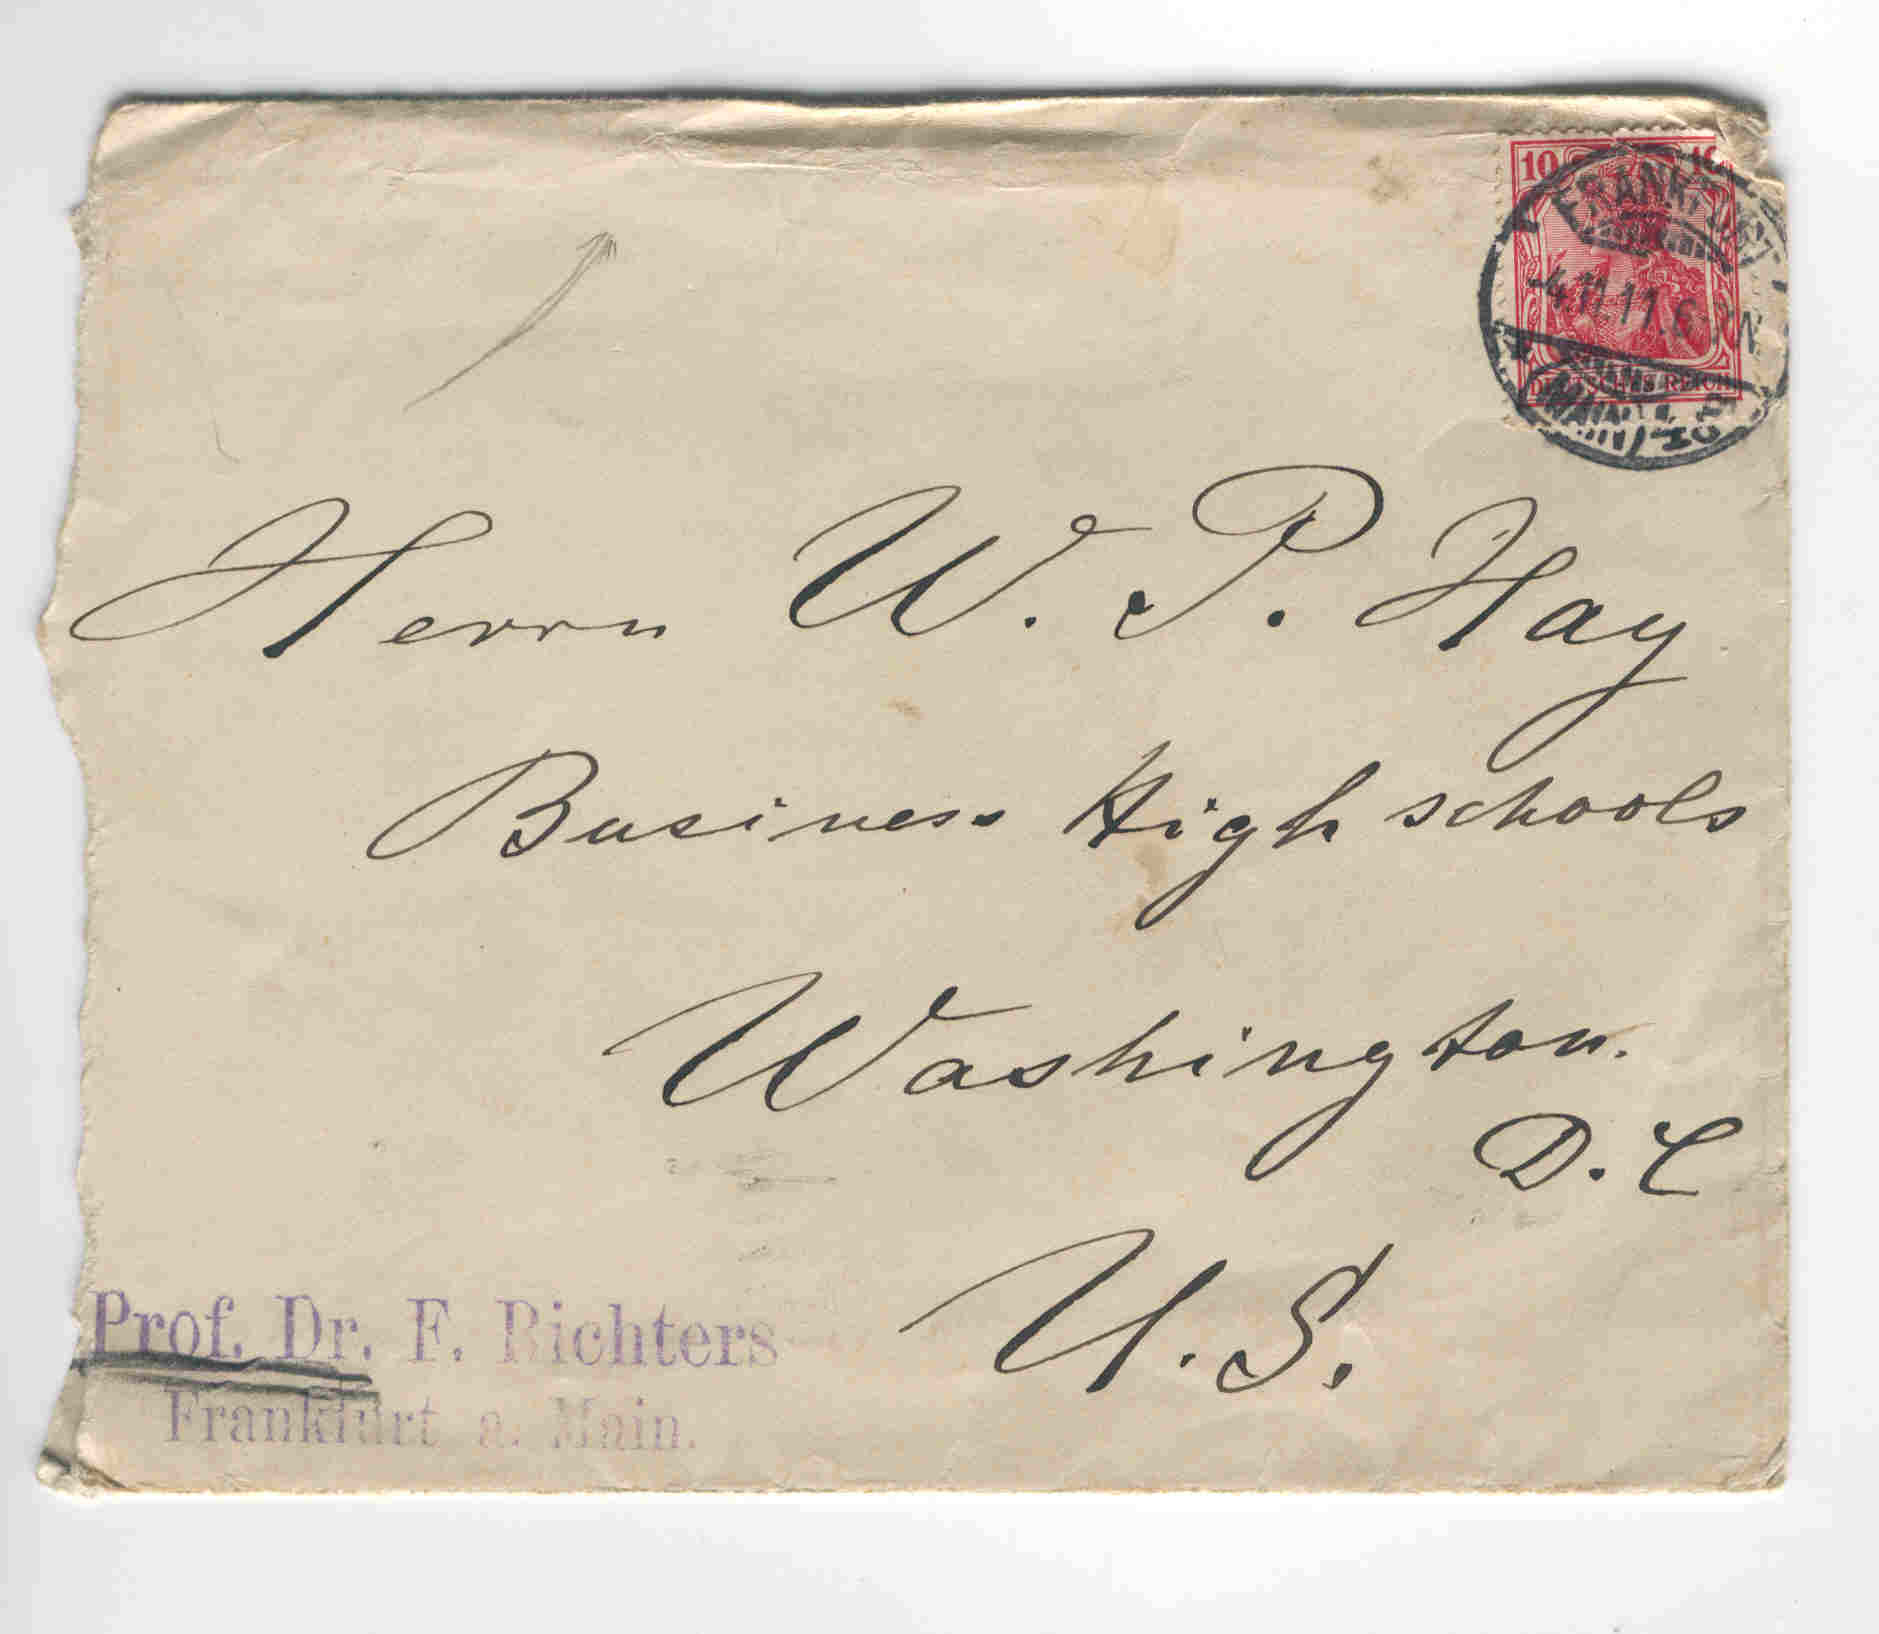 10 10
FRANKFURT
-4.11.11.6-7N
DEUTSCHES REICH
(MAIN)
Herrn W. P. Hay
Business High schools
Washington.
D. C
U. S.
Prof. Dr. F. Richters
Frankfurt a. Main.